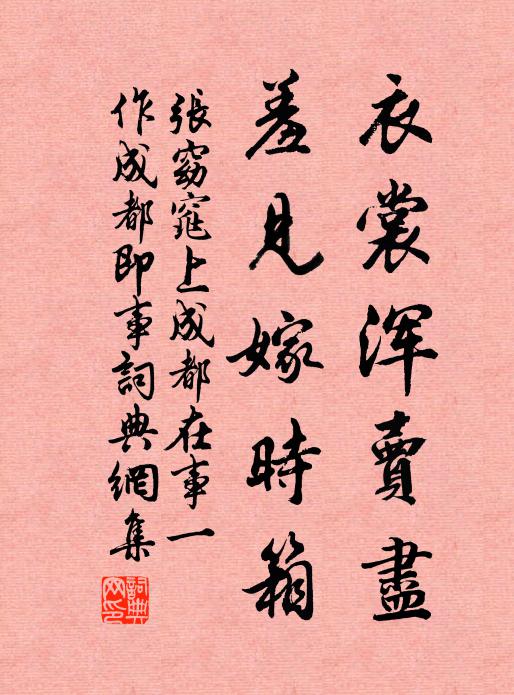 衣裳渾賣盡
羞見嫁時箱
張窈窕上成都在事一
作成都即事詞典網集
詞典網印